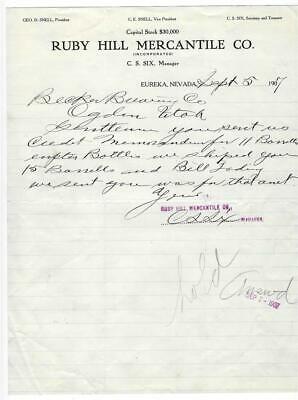 GEO. D. SNELL, President
C. E. SNELL, Vice President
C. S. SIX, Secretary and Treasurer
Capital Stock $30,000
RUBY HILL MERCANTILE CO.
(INCORPORATED)
C. S. SIX, Manager
EUREKA, NEVADA, Sept 5 1907
Becker Brewing Co
Ogden Utah
Gentlemen you sent us
Credit Memorandum for 11 Barrels
empter Bottles we shiped you
15 Barrells and Bill Lading
we sent you was for that amt
Yours
RUBY HILL MERCANTILE CO.
C S Six
MANAGER.
hold
Answd
SEP 1907